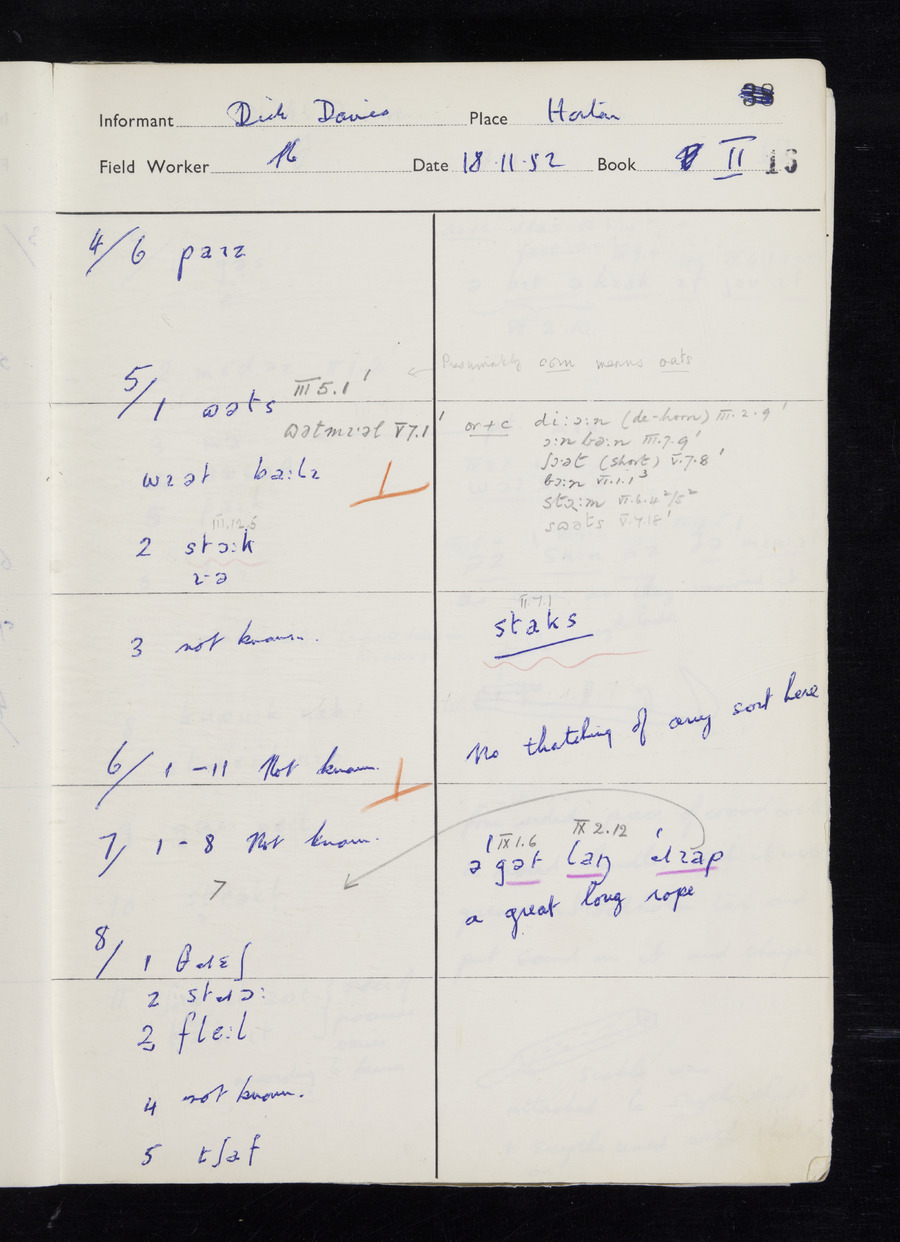 Informant Dick Davies Place Horton
Field Worker Date 18.11.52 Book II 15
4/6 paɪz
5/1 ɷəts III 5.1
ɷətmɪəl V 7.1
wɪət baːlɪ
III.12.5
2 stɔːk
3 not known.
6/ 1 – 11 Not known.
7/ 1 – 8 Not known.
8/ 1 θɹɛʃ
2 stɹɔː
3 fleːl
4 not known.
5 tʃaf
Presumably corn means oats
or + c diːɔːn (de-horn) III.2.9
ɔːnbɔːn III.7.9
ʃɔət (short) V.7.8
bɔːn VI.1.1
stɔːm VI.6.4²/5²
sɷəts V.7.18
II.7.1
staks
No thatching of any sort here
IX 1.6 IX 2.12
ə gət laŋ ɹɪap
a great long rope